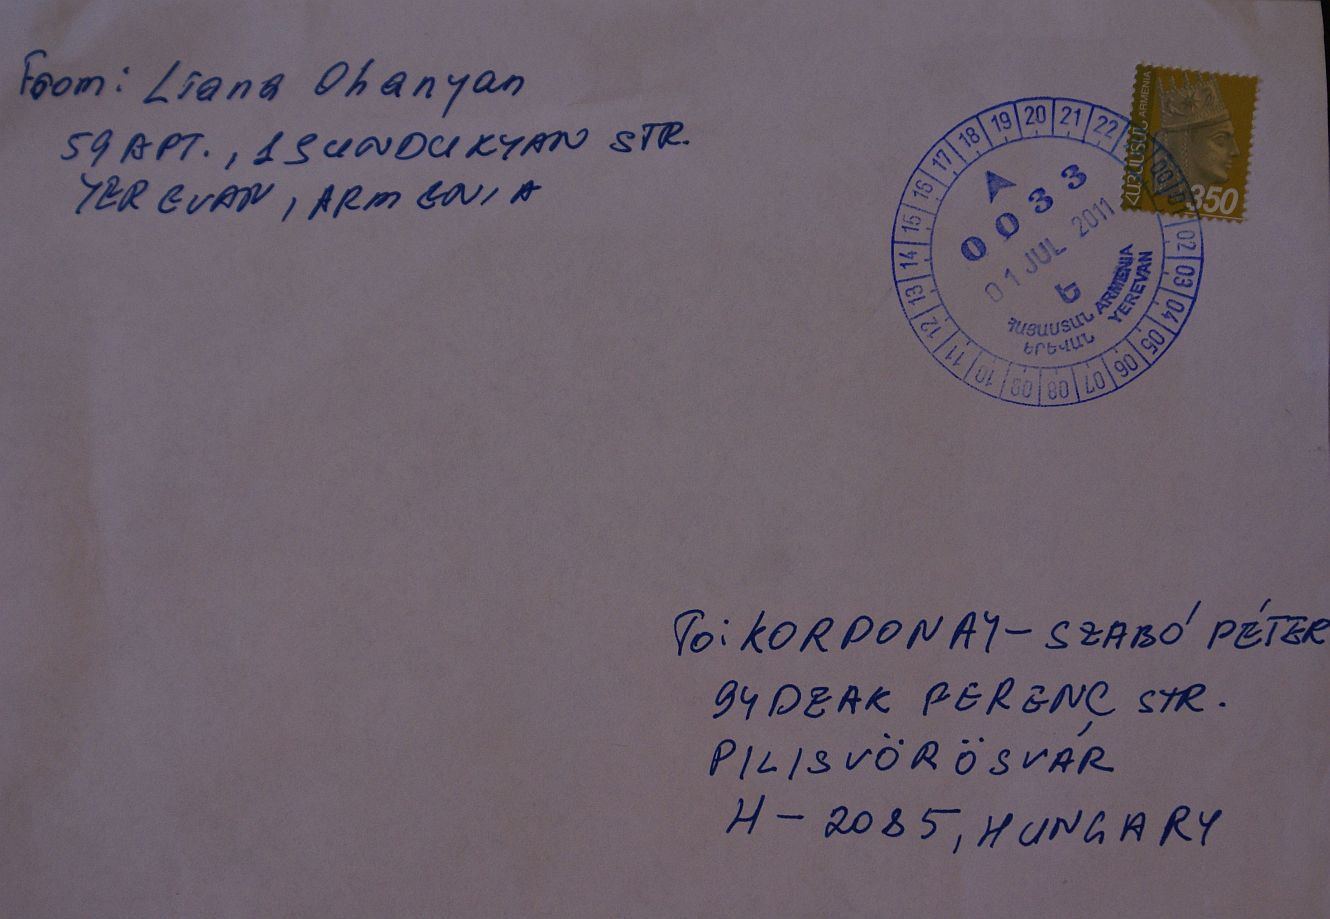 From: Liana Ohanyan
59 APT., 1 SUNDUKYAN STR.
YEREVAN, ARMENIA
ՀԱՅԱՍՏԱՆ ARMENIA
350
20 21 22 00 02 03 04 05 06 07 08 09 10 11 12 13 14 15 16 17 18 19
A
0033
01 JUL 2011
Ե
ՀԱՅԱՍՏԱՆ ARMENIA
ԵՐԵՎԱՆ YEREVAN
To: KORDONAY-SZABÓ PÉTER
94 DEAK FERENC STR.
PILISVÖRÖSVÁR
H-2085, HUNGARY